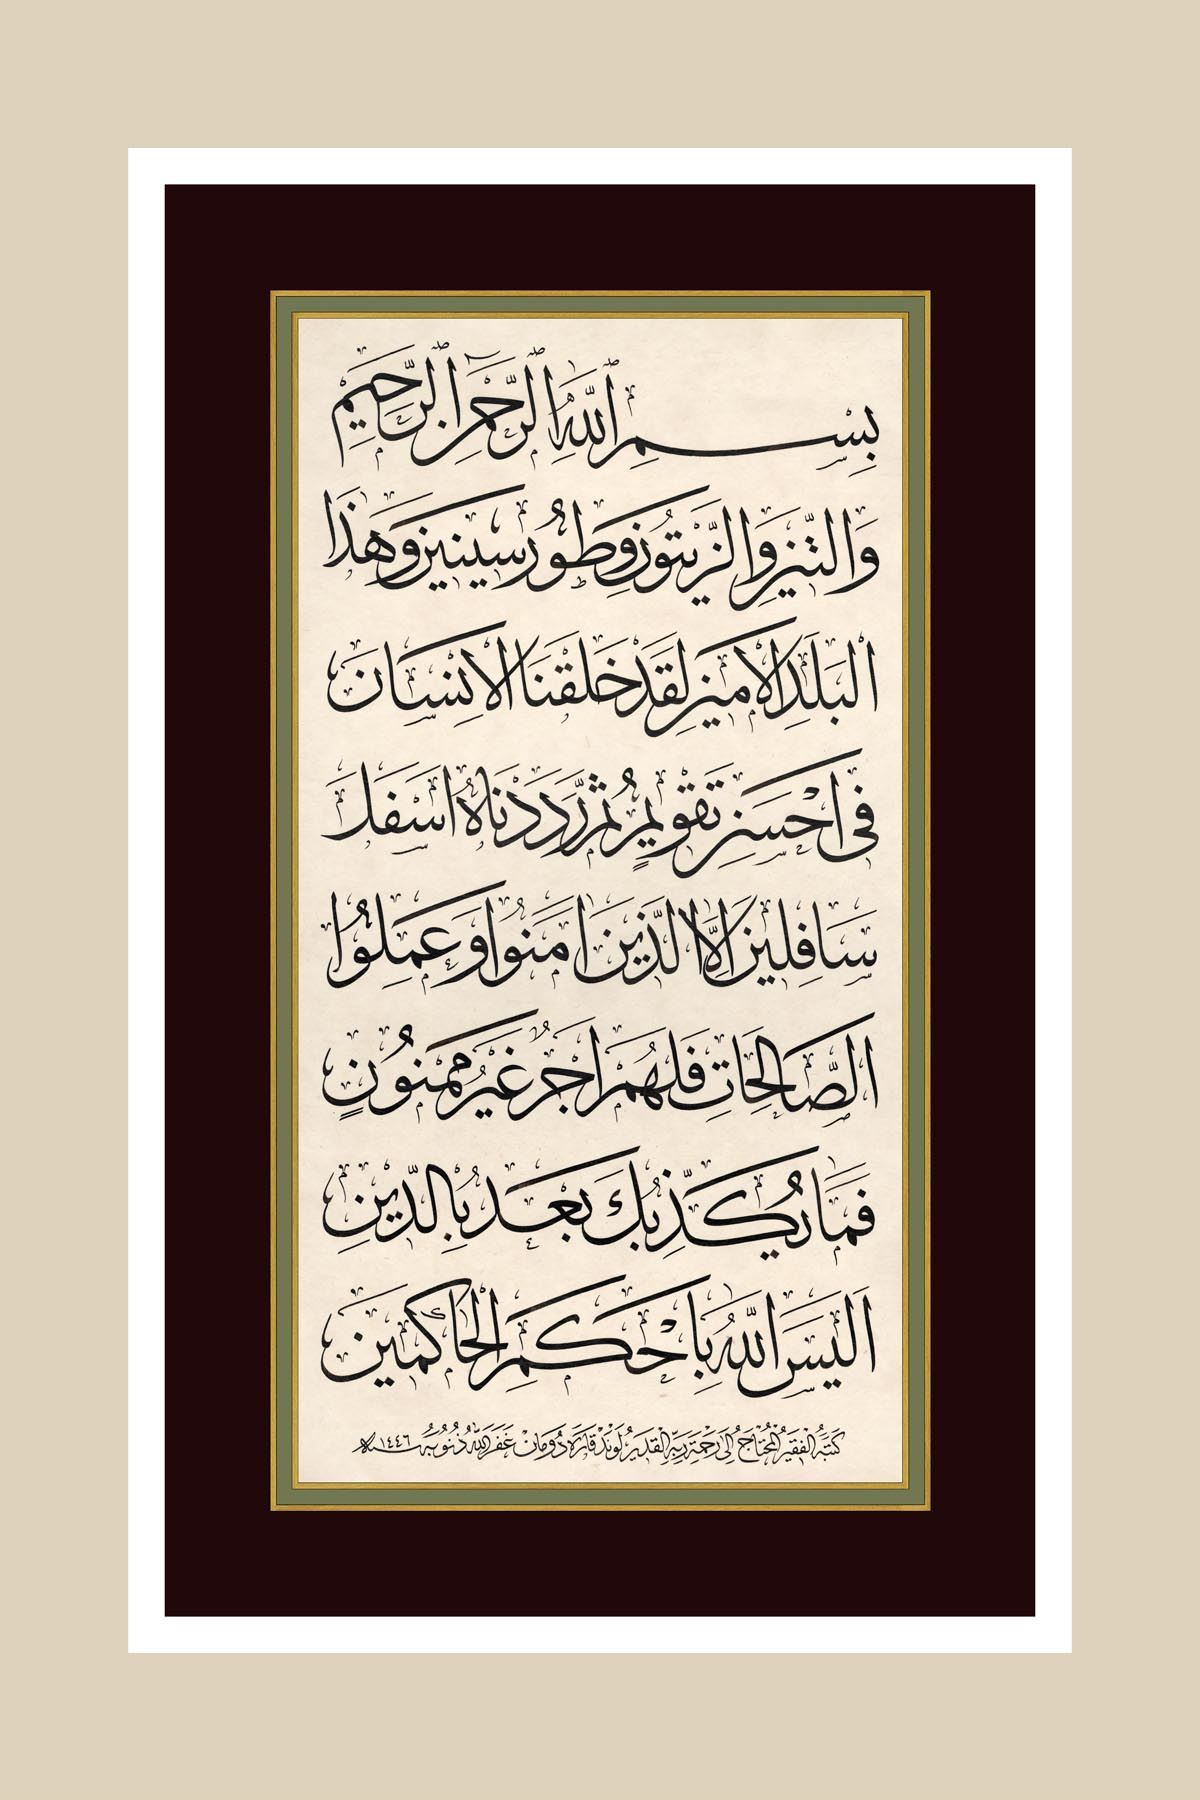 بِسْمِ اللّٰهِ الرَّحْمٰنِ الرَّحِيمِ
وَالتِّينِ وَالزَّيْتُونِ وَطُورِ سِينِينَ وَهٰذَا
الْبَلَدِ الْاَمِينِ لَقَدْ خَلَقْنَا الْاِنْسَانَ
فِى اَحْسَنِ تَقْوِيمٍ ثُمَّ رَدَدْنَاهُ اَسْفَلَ
سَافِلِينَ اِلَّا الَّذِينَ اٰمَنُوا وَعَمِلُوا
الصَّالِحَاتِ فَلَهُمْ اَجْرٌ غَيْرُ مَمْنُونٍ
فَمَا يُكَذِّبُكَ بَعْدُ بِالدِّينِ
اَلَيْسَ اللّٰهُ بِاَحْكَمِ الْحَاكِمِينَ
كَتَبَهُ الْفَقِيرُ الْمُحْتَاجُ اِلٰى رَحْمَةِ رَبِّهِ الْقَدِيرِ لَوَنْد قَارَه دُومَان غَفَرَ اللّٰهُ ذُنُوبَهُ سنة ١٤٤٦